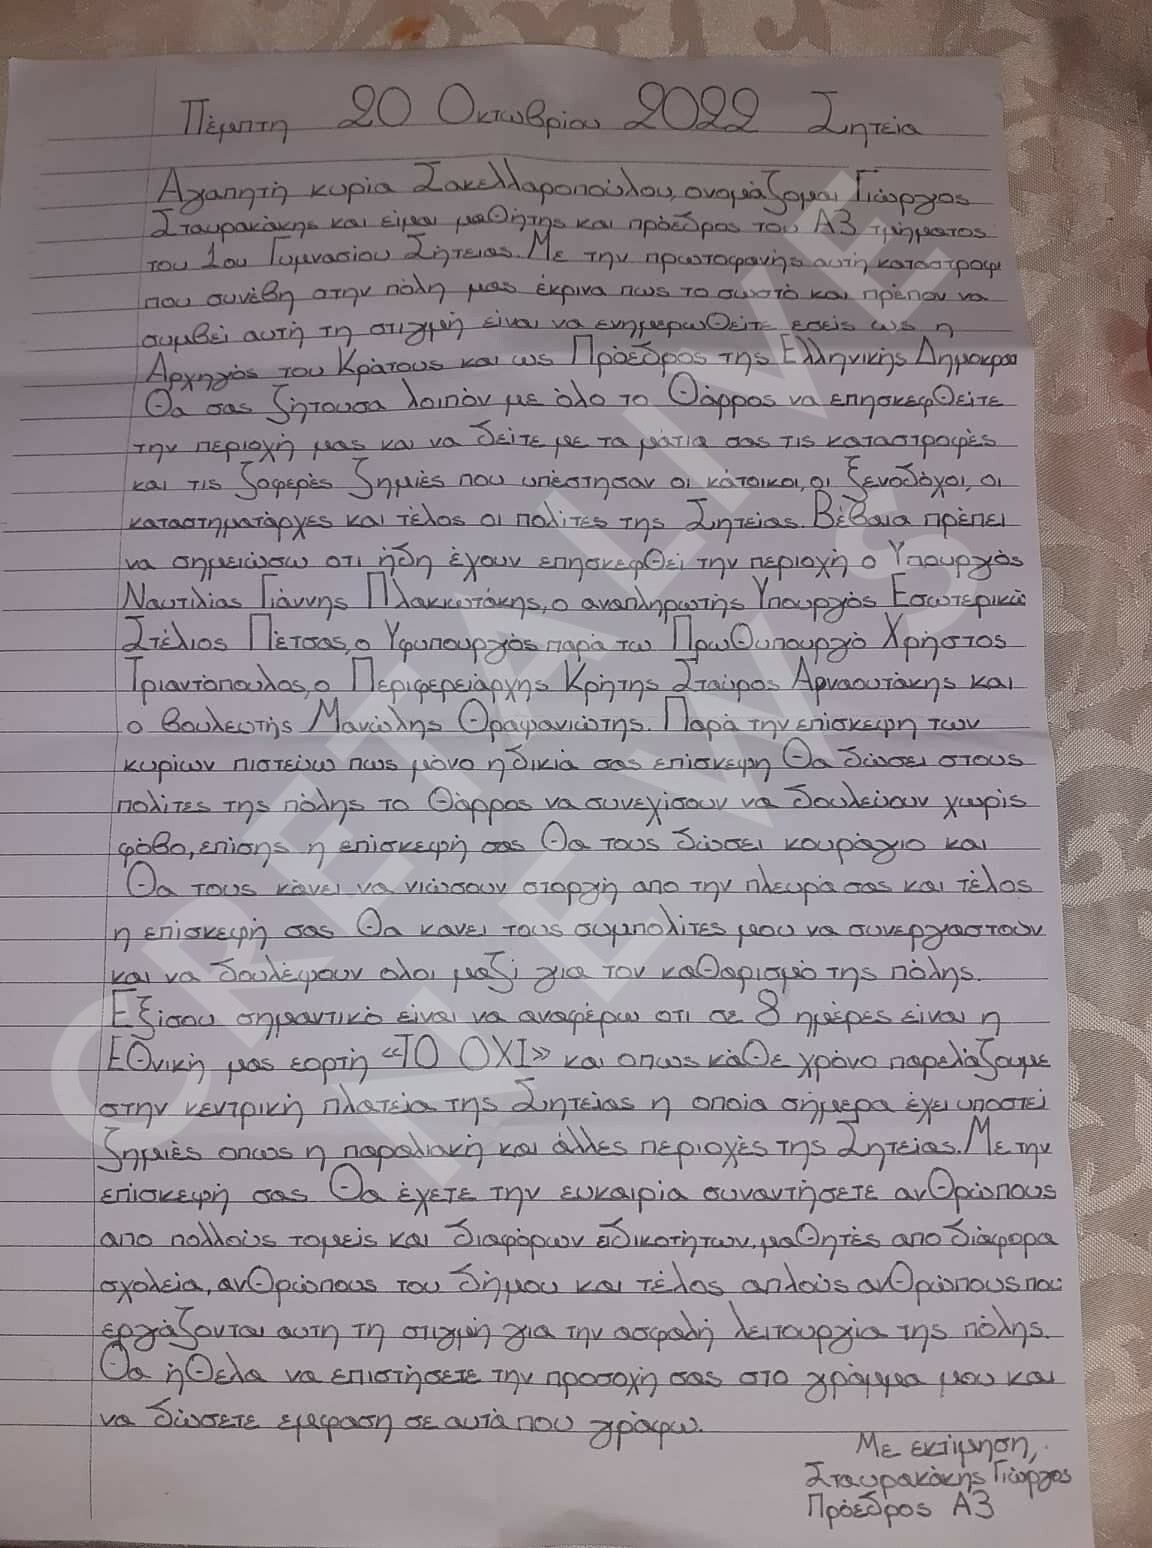 Πέμπτη 20 Οκτωβρίου 2022 Σητεία
Αγαπητή κυρία Σακελλαροπούλου, ονομάζομαι Γιώργος
Σταυρακάκης και είμαι μαθητης και πρόεδρος του Α3 τμήματος
του 1ου Γυμνασίου Σητειας. Με την πρωτοφανής αυτή καταστροφή
που συνέβη στην πόλη μας έκρινα πως το σωστό και πρέπον να
συμβεί αυτή τη στιγμή είναι να ενημερωθείτε εσείς ως η
Αρχηγός του Κράτους και ως Πρόεδρος της Ελληνικής Δημοκρα
Θα σας ζήτουσα λοιπόν με όλο το Θάρρος να επησκεφθείτε
την περιοχή μας και να δείτε με τα μάτια σας τις καταστροφές
και τις ζοφερές ζημιές που υπέστησαν οι κάτοικοι, οι ξενοδόχοι, οι
καταστηματάρχες και τέλος οι πολίτες της Σητείας. Βέβαια πρέπει
να σημειώσω οτι ήδη έχουν επησκεφθεί την περιοχή ο Υπουργός
Ναυτιλίας Γιάννης Πλακιωτάκης, ο αναπληρωτής Υπουργός Εσωτερικώ
Στέλιος Πέτσας, ο Υφυπουργός παρά τω Πρωθυπουργό Χρήστος
Τριαντόπουλος, ο Περιφερειάρχης Κρήτης Σταύρος Αρναουτάκης και
ο βουλευτής Μανώλης Θραψανιώτης. Παρά την επίσκεψη των
κυρίων πιστεύω πως μόνο η δικιά σας επίσκεψη θα δώσει στους
πολίτες της πόλης το Θάρρος να συνεχίσουν να δουλεύουν χωρίς
φόβο, επίσης η επίσκεψή σας Θα τους δώσει κουράγιο και
Θα τους κάνει να νιώσουν στοργή απο την πλευρά σας και τέλος
η επίσκεψή σας θα κανει τους συμπολίτες μου να συνεργαστούν
και να δουλέψουν ολοι μαζί για τον καθαρισμό της πόλης.
Εξίσου σημαντικό είναι να αναφέρω οτι σε 8 ημέρες είναι η
Εθνική μας εορτή «ΤΟ ΟΧΙ» και οπως κάθε χρόνο παρελάζουμε
στην κεντρική πλατεία της Σητείας η οποία σήμερα έχει υποστεί
ζημιές οπως η παραλιακή και άλλες περιοχές της Σητείας. Με την
επίσκεψή σας Θα έχετε την ευκαιρία συναντήσετε ανθρώπους
απο πολλούς τομείς και διαφόρων ειδικοτήτων, μαθητές απο διάφορα
σχολεία, ανθρώπους του δήμου και τέλος απλούς ανθρώπους που
εργάζονται αυτη τη στιγμή για την ασφαλή λειτουργία της πόλης.
Θα ήθελα να επιστήσετε την προσοχή σας στο γράμμα μου και
να δώσετε εμφαση σε αυτά που γράφω.
Με εκτίμηση,
Σταυρακάκης Γιώργος
Πρόεδρος Α3
CRETALIVE
NEWS